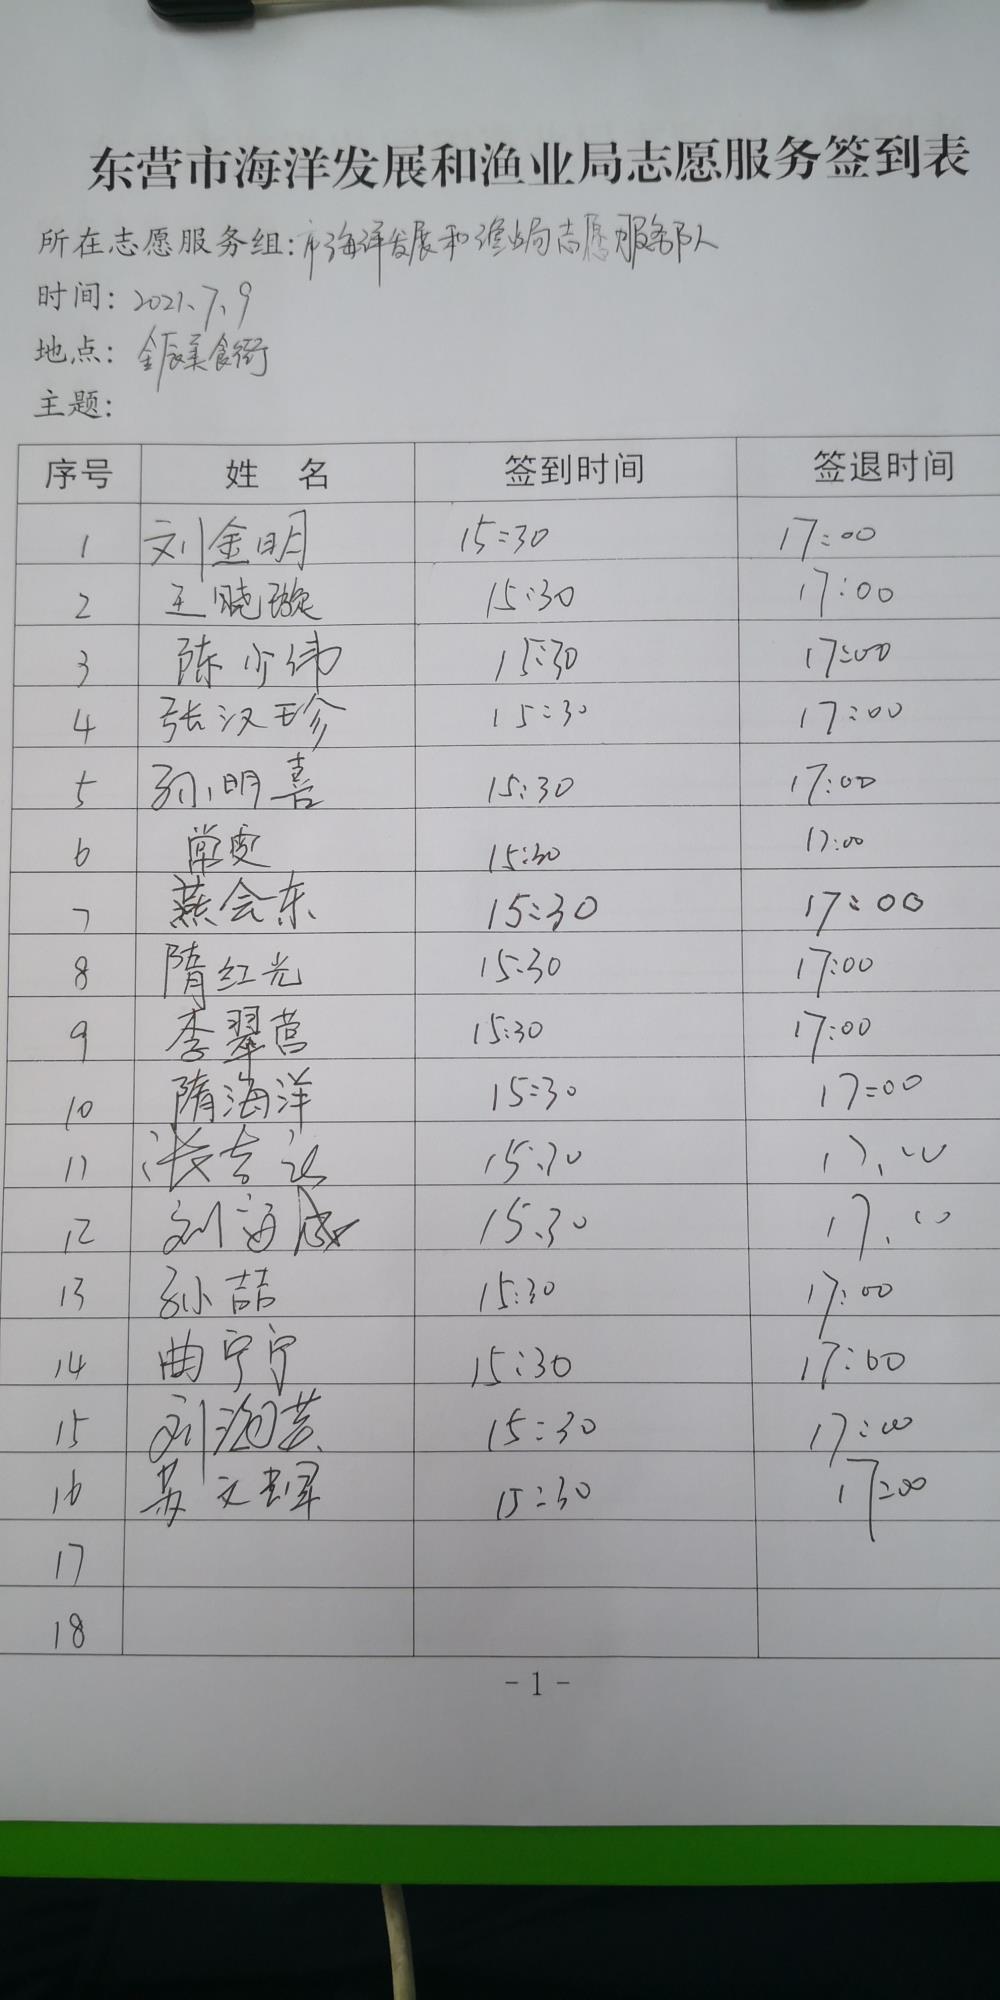 东营市海洋发展和渔业局志愿服务签到表
所在志愿服务组:市海洋发展和渔业局志愿服务队
时间:2021.7.9
地点:金辰美食街
主题:
序号 姓 名 签到时间 签退时间
1 刘金明 15:30 17:00
2 王晓璇 15:30 17:00
3 陈少伟 15:30 17:00
4 张汉珍 15:30 17:00
5 孙明喜 15:30 17:00
6 常雯 15:30 17:00
7 燕会东 15:30 17:00
8 隋红光 15:30 17:00
9 李翠营 15:30 17:00
10 隋海洋 15:30 17:00
11 张吉 15.30 17.00
12 刘海成 15.30 17.00
13 孙喆 15:30 17:00
14 曲宁宁 15:30 17:00
15 刘海 15:30 17:00
16 苏文 15:30 17:00
17
18
- 1 -